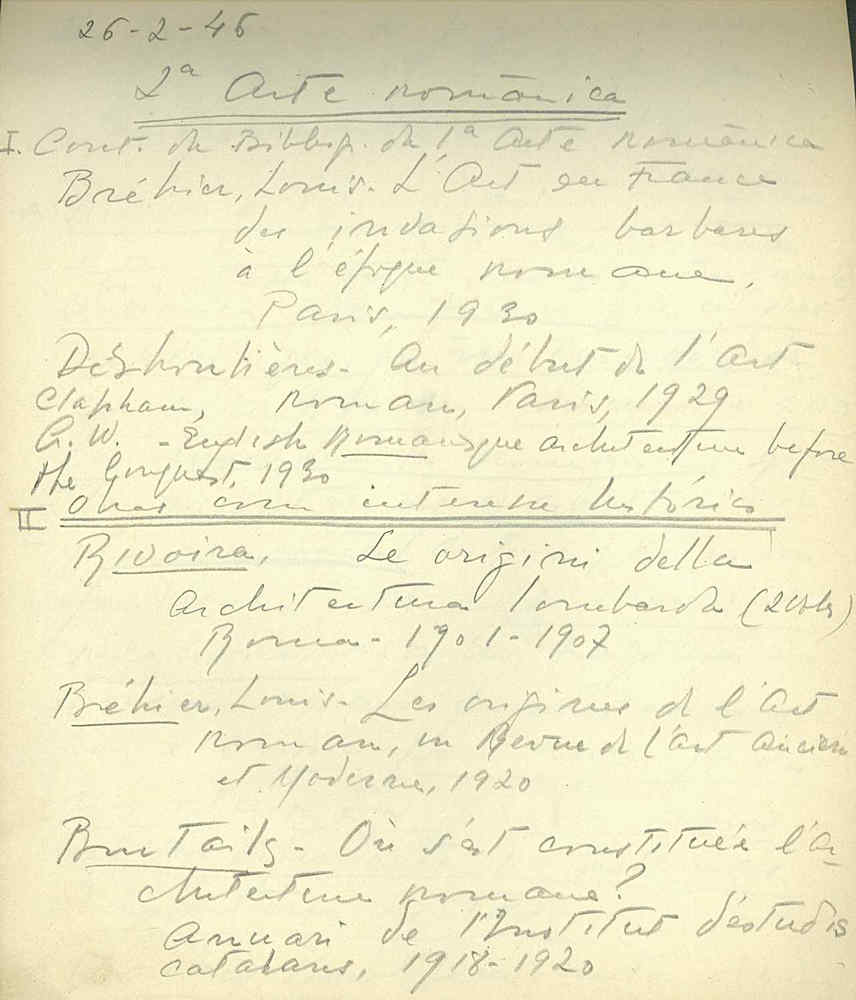 26-2-46
2ª Arte românica
I. Cont. da Bibliogr. da 1ª Arte românica
Bréhier, Louis. L'Art en France
des invasions barbares
à l'époque romane,
Paris, 1930
Deshoulières - Au début de l'Art
Clapham, roman, Paris, 1929
A. W. - English Romanesque architecture before
the Conquest, 1930
II Obras com interesse histórico
Rivoira, Le origini della
Architettura lombarda (2 vols)
Roma - 1901-1907
Bréhier, Louis - Les origines de l'Art
roman, in Revue de l'art Ancien
et Moderne, 1920
Brutails - Où s'est constituée l'ar-
chitecture romane?
Anuari de l'Institut d'estudis
catalans, 1918-1920